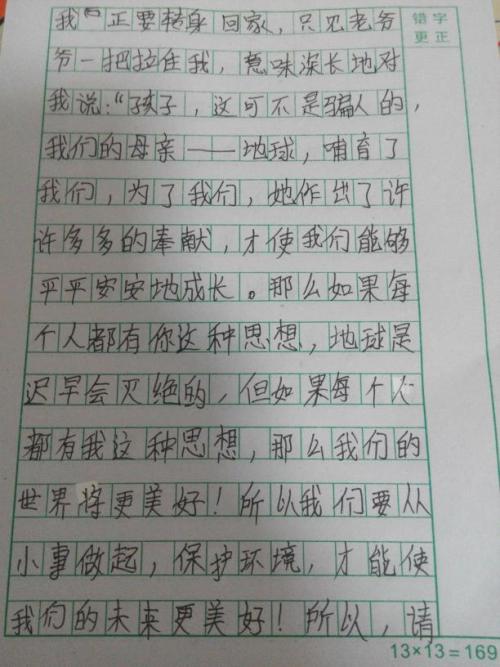 我正要转身回家，只见老爷
错字
更正
爷一把拉住我，意味深长地对
我说：“孩子，这可不是骗人的，
我们的母亲——地球，哺育了
我们，为了我们，她作出了许
许多多的奉献，才使我们能够
平平安安地成长。那么如果每
个人都有你这种思想，地球是
迟早会灭绝的，但如果每个人
都有我这种思想，那么我们的
世界将更美好！所以我们要从
小事做起，保护环境，才能使
我们的未来更美好！所以，请
13×13=169